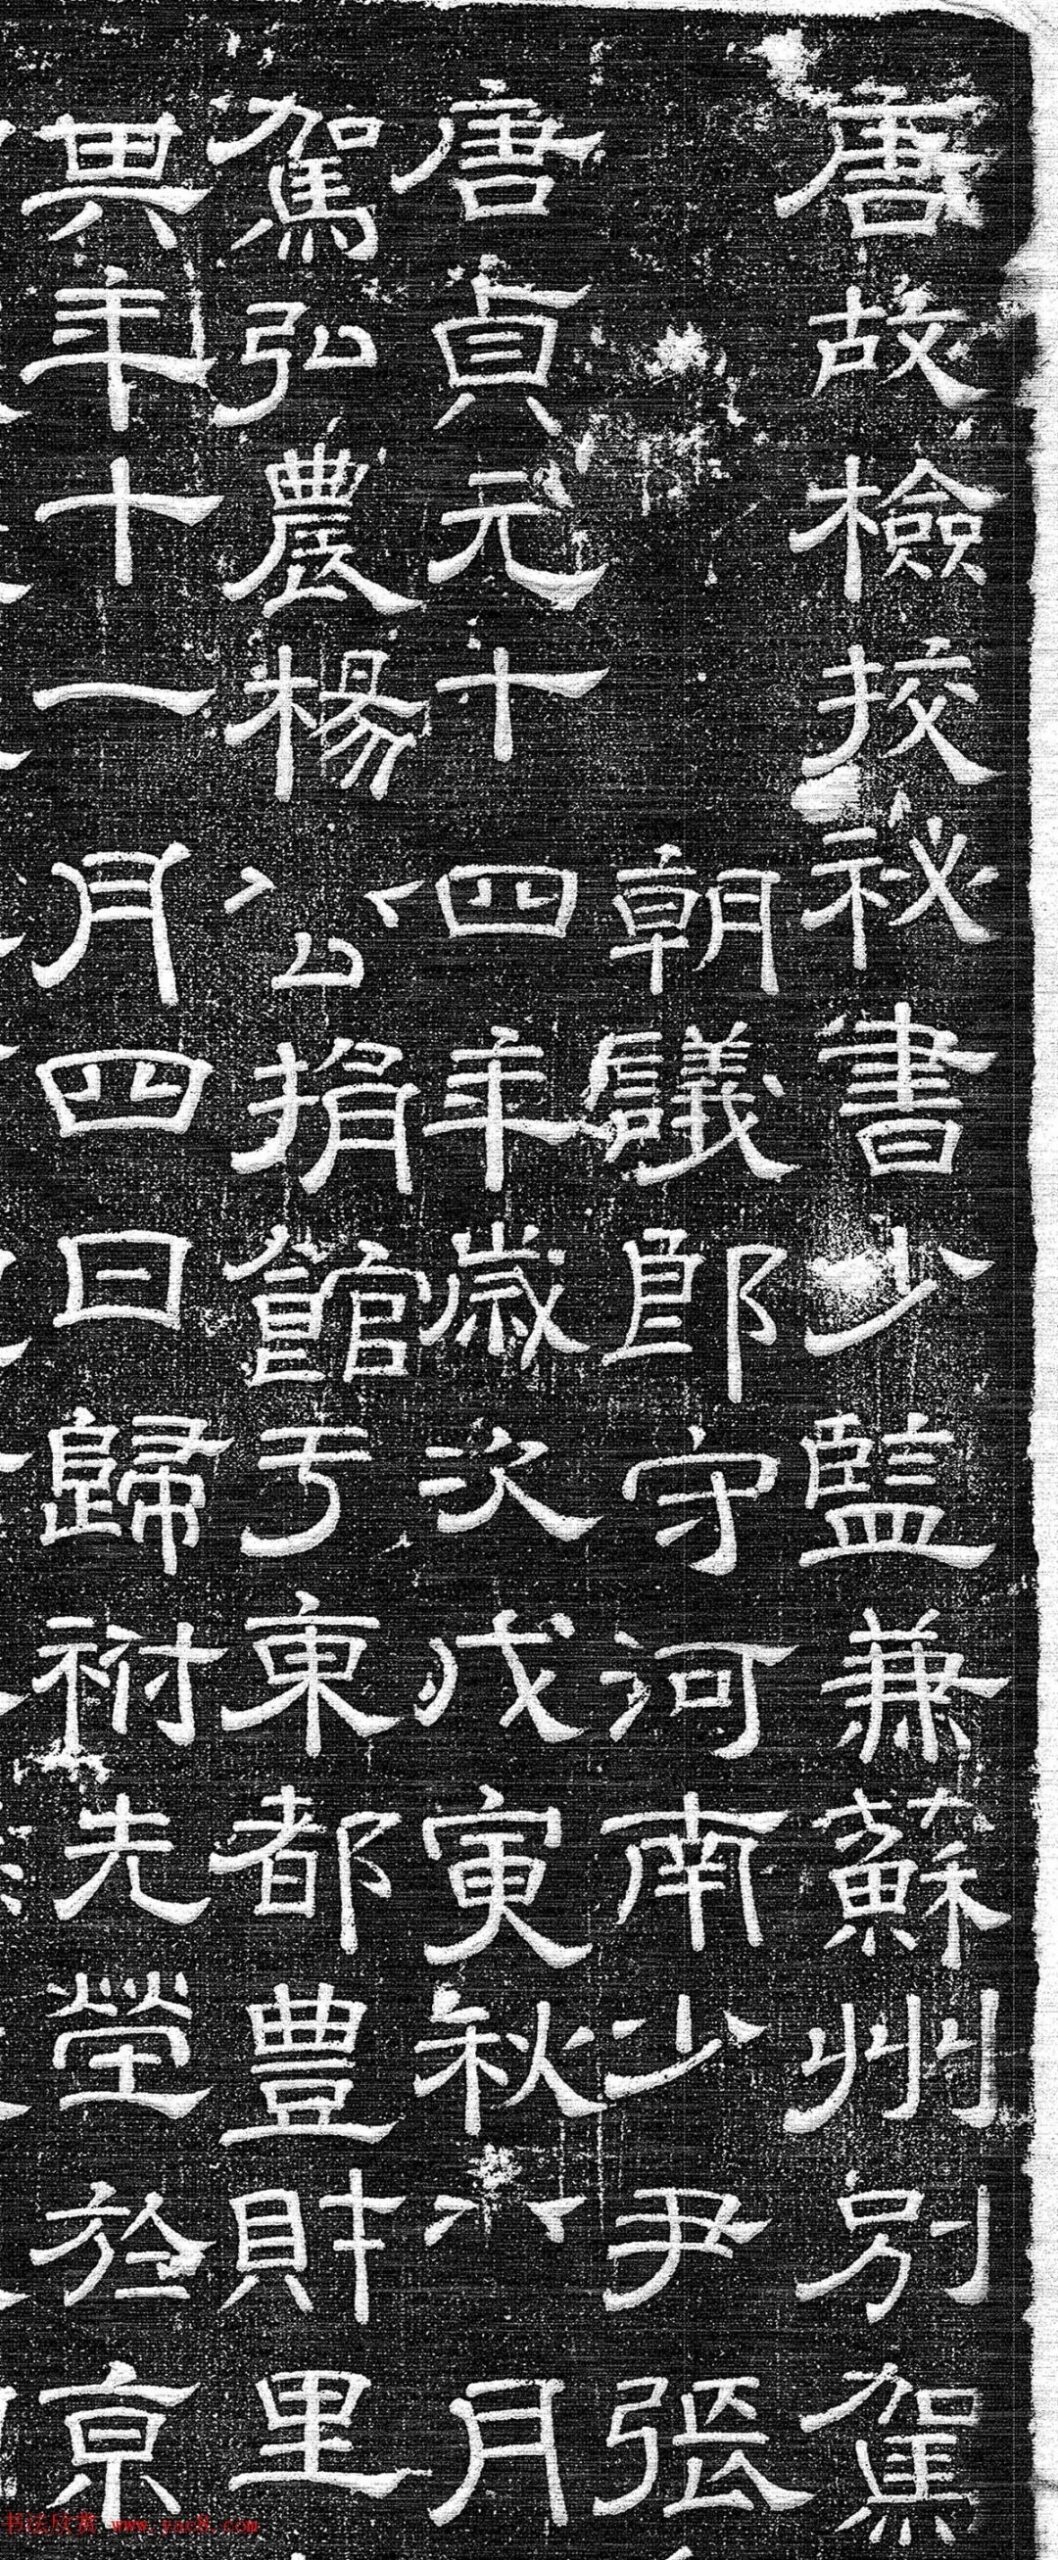 唐故檢挍祕書少監兼蘇州別駕
朝議郎守河南少尹張
唐貞元十四年歲次戊寅秋八月
駕弘農楊公捐館亐東都豊財里
異年十一月四日歸祔先塋於京
书法欣赏 www.yac8.com